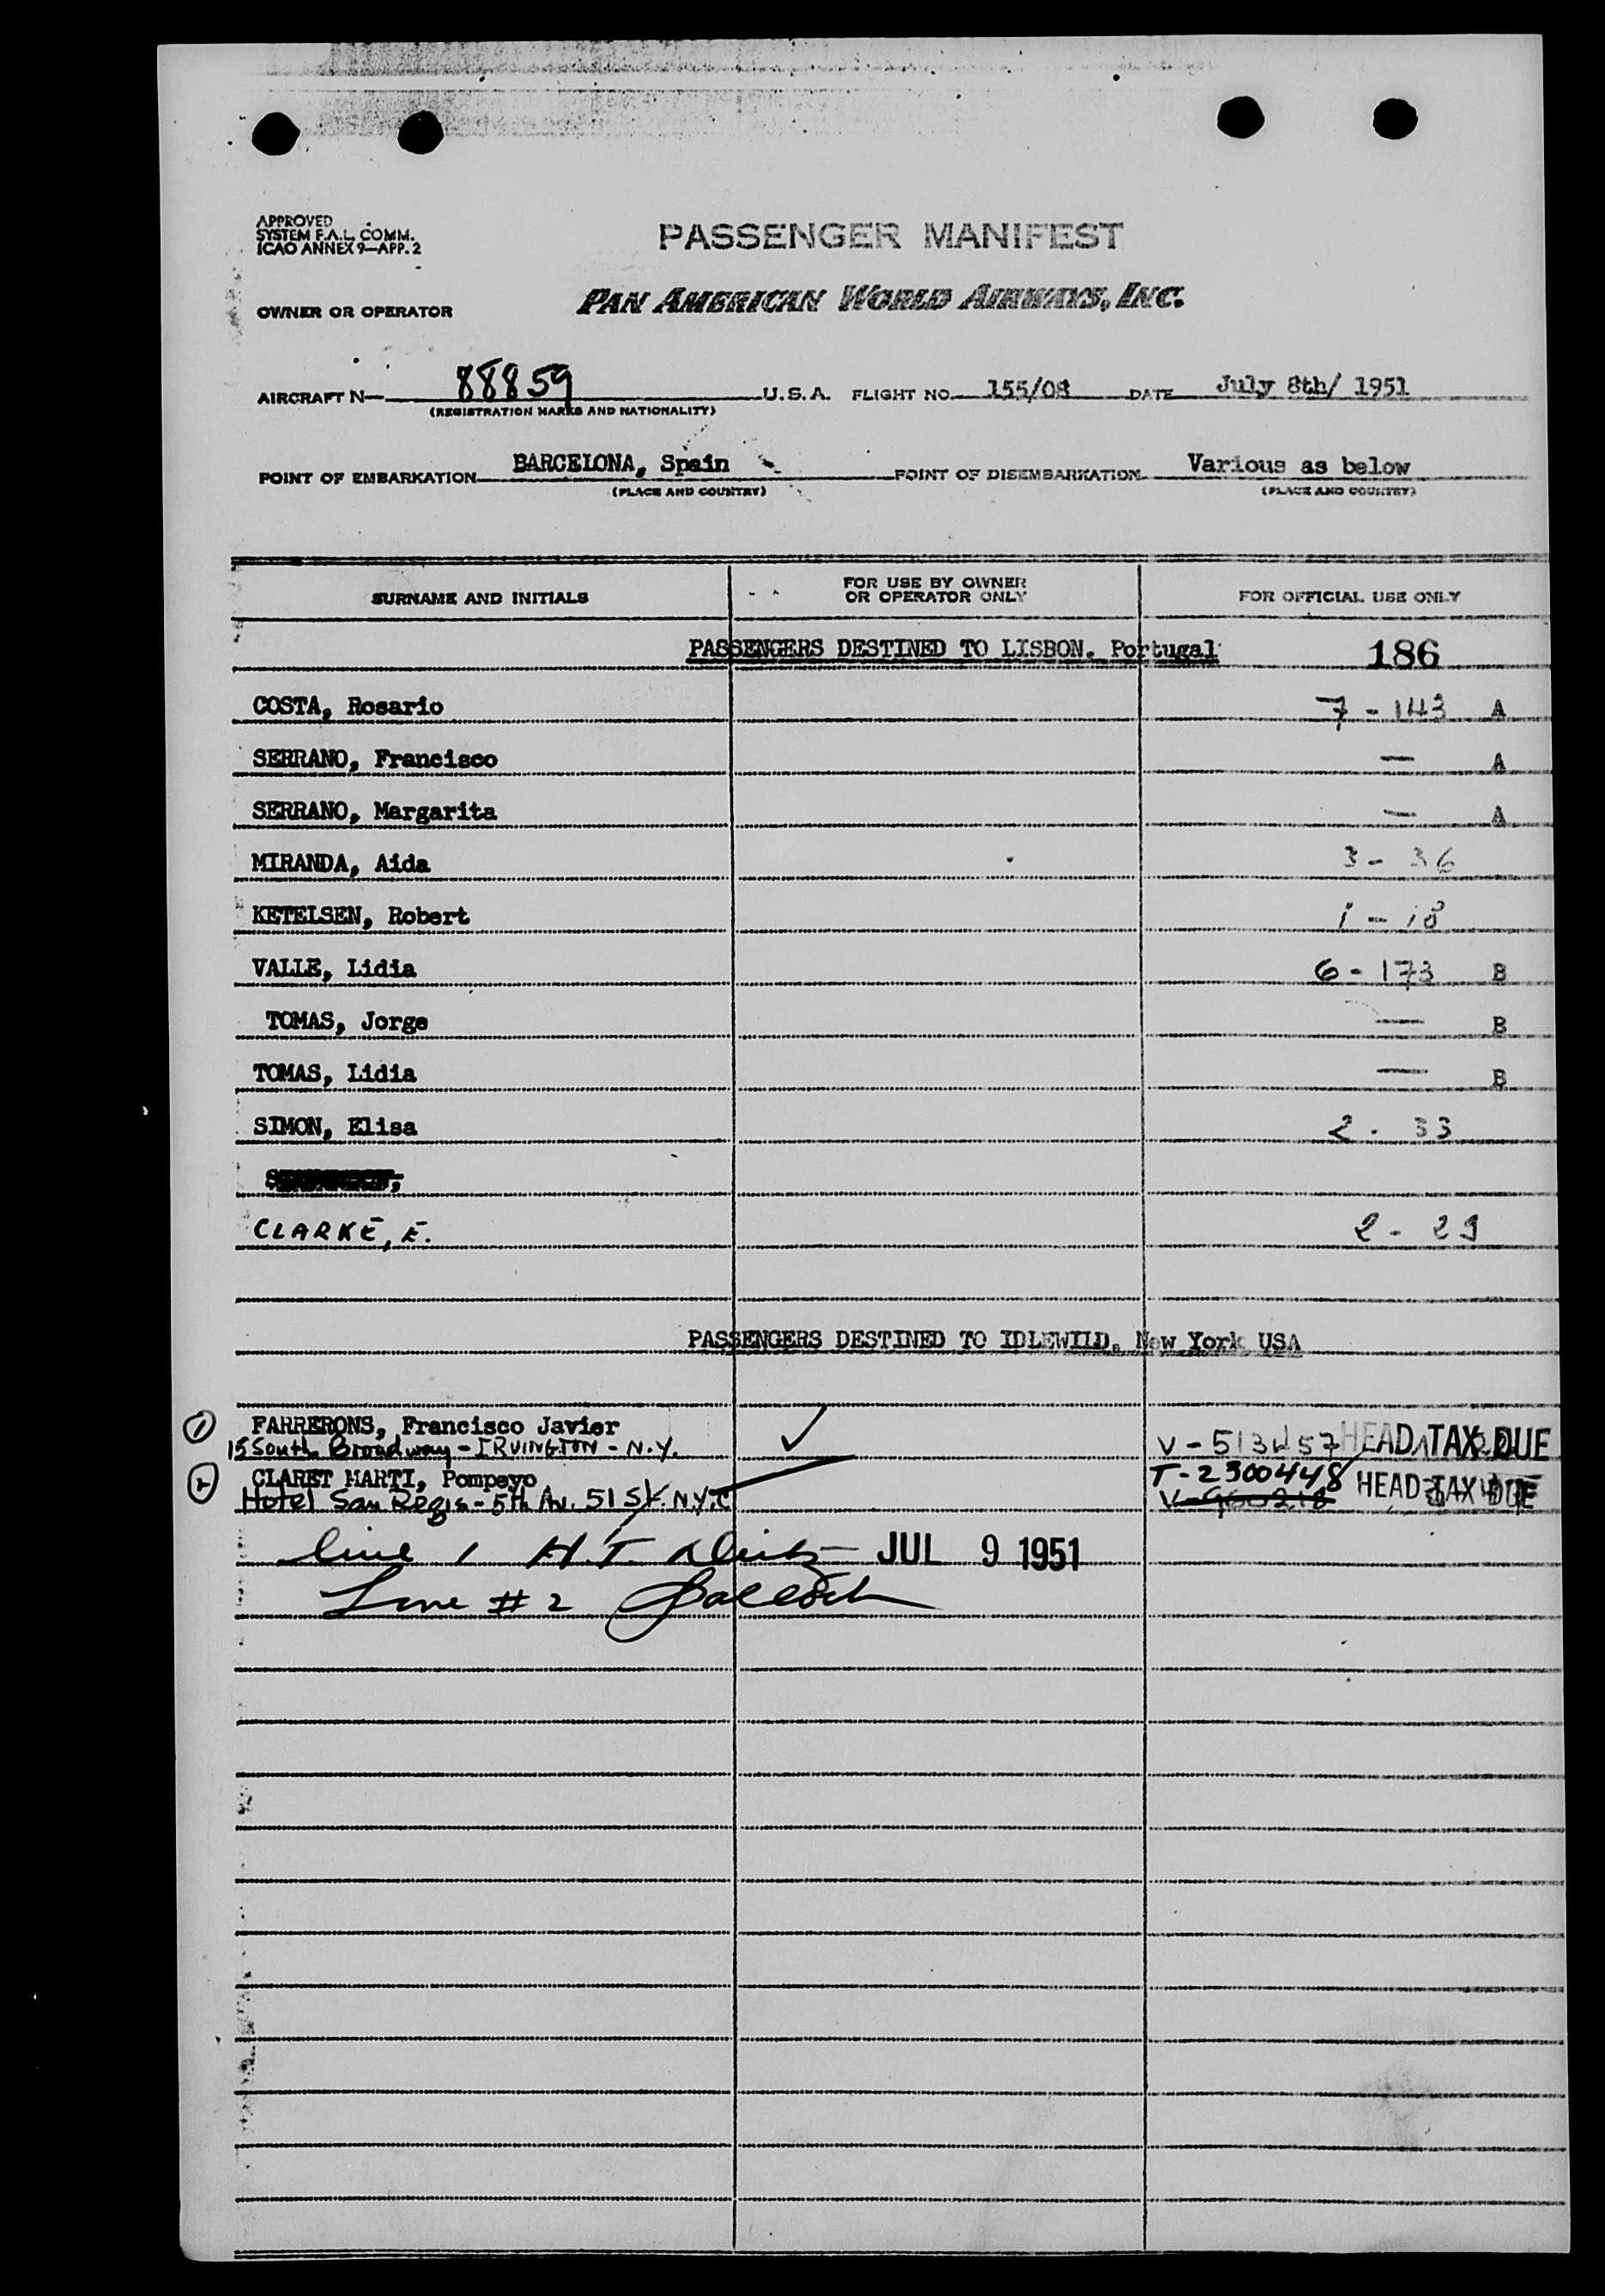 APPROVED
SYSTEM F.A.L. COMM.
ICAO ANNEX 9—APP. 2
PASSENGER MANIFEST
OWNER OR OPERATOR PAN AMERICAN WORLD AIRWAYS, INC.
AIRCRAFT N— 88859 U.S.A. FLIGHT NO. 155/08 DATE July 8th/ 1951
(REGISTRATION MARKS AND NATIONALITY)
POINT OF EMBARKATION BARCELONA, Spain POINT OF DISEMBARKATION Various as below
(PLACE AND COUNTRY) (PLACE AND COUNTRY)
SURNAME AND INITIALS FOR USE BY OWNER OR OPERATOR ONLY FOR OFFICIAL USE ONLY
PASSENGERS DESTINED TO LISBON. Portugal 186
COSTA, Rosario 7 - 143 A
SERRANO, Francisco — A
SERRANO, Margarita — A
MIRANDA, Aida 3 - 36
KETELSEN, Robert 1 - 18
VALLE, Lidia 6 - 173 B
TOMAS, Jorge — B
TOMAS, Lidia — B
SIMON, Elisa 2 - 33
CLARKE, E. 2 - 29
PASSENGERS DESTINED TO IDLEWILD. New York USA
1 FARRERONS, Francisco Javier
15 South Broadway - IRVINGTON - N.Y. V - 513457 HEAD TAX DUE
2 CLARET MARTI, Pompeyo T - 2300448 HEAD TAX DUE
Hotel San Regis - 5th Av. 51 St. N.Y.C
line 1 H.T. JUL 9 1951
Line # 2